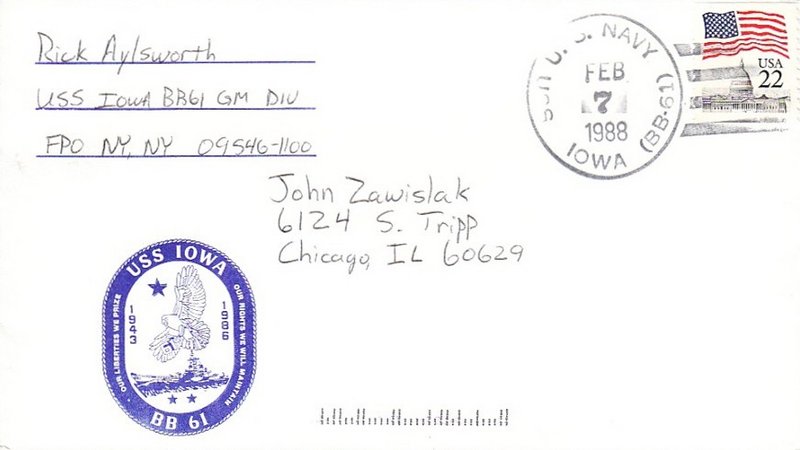 Rick Aylsworth
USS IOWA BB61 GM DIV
FPO NY, NY 09546-1100
U. S. NAVY
FEB
7
1988
IOWA (BB-61)
USA
22
John Zawislak
6124 S. Tripp
Chicago, IL 60629
USS IOWA
OUR LIBERTIES WE PRIZE
OUR RIGHTS WE WILL MAINTAIN
1943
1986
BB 61